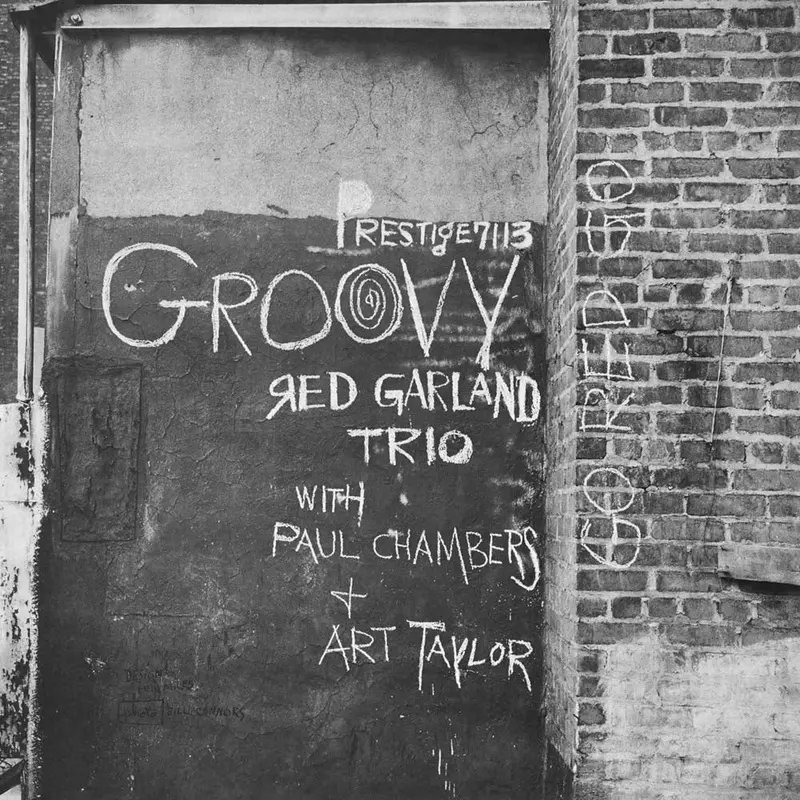 PRESTIGE 7113
GROOVY
RED GARLAND
TRIO
WITH
PAUL CHAMBERS
+
ART TAYLOR
GO RED GO
DESIGN
photo BILL CONNORS